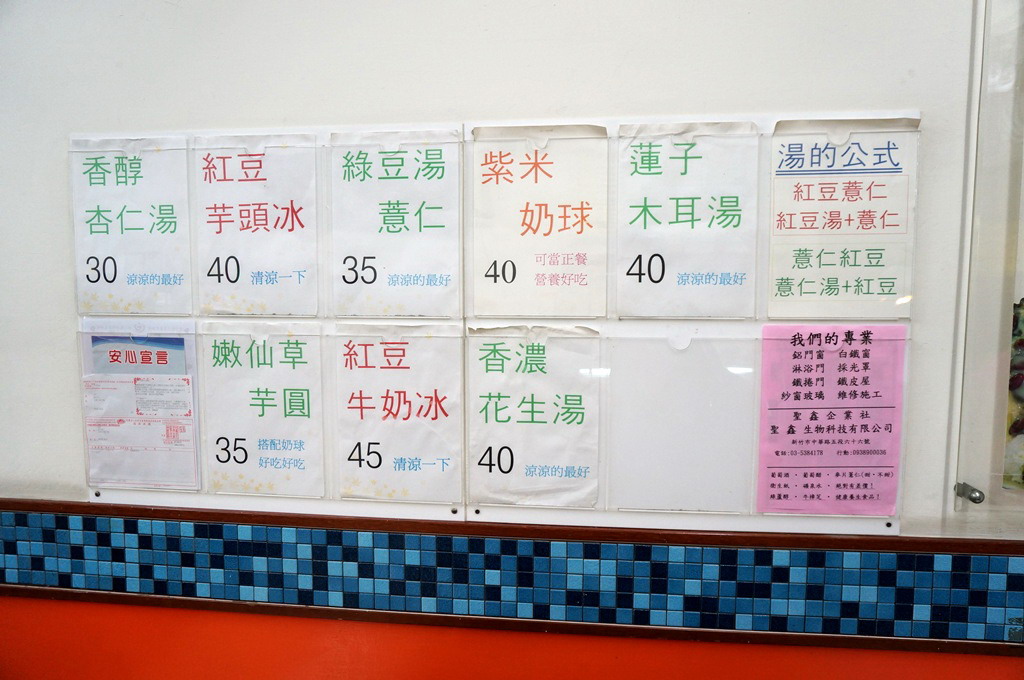 香醇
杏仁湯
30 涼涼的最好
紅豆
芋頭冰
40 清涼一下
綠豆湯
薏仁
35 涼涼的最好
紫米
奶球
40 可當正餐
營養好吃
蓮子
木耳湯
40 涼涼的最好
湯的公式
紅豆薏仁
紅豆湯+薏仁
薏仁紅豆
薏仁湯+紅豆
安心宣言
嫩仙草
芋圓
35 搭配奶球
好吃好吃
紅豆
牛奶冰
45 清涼一下
香濃
花生湯
40 涼涼的最好
我們的專業
鋁門窗 白鐵窗
淋浴門 採光罩
鐵捲門 鐵皮屋
紗窗玻璃 維修施工
聖鑫企業社
聖鑫生物科技有限公司
新竹市中華路五段六十六號
電話:03-5384178 行動:0938900036